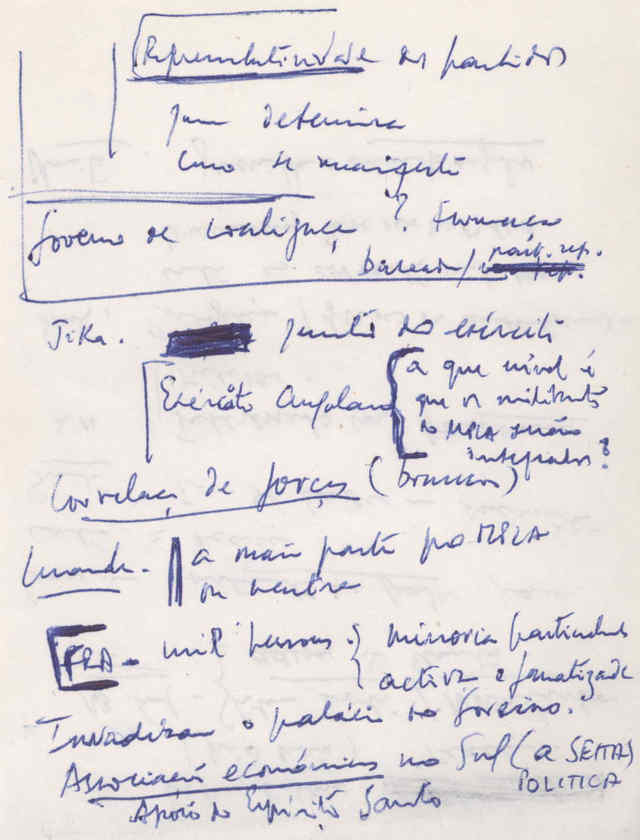 Representatividade dos partidos
quem determina
como se manifesta
Governo de coalizão ? Formação
baseado / part. rep.
Jika. questão do exército
Exército Angolano { a que nível é
que os militantes
do MPLA serão
integrados?
Correlação de forças (brancos)
Luanda. a maior parte pro MPLA
ou neutra
FRA - mil pessoas. { minoria particular
activa e fanatizada
Invadiram o palácio do Governo.
Associações económicas no Sul (a SEITAS)
POLITICA
Apoio do Espírito Santo